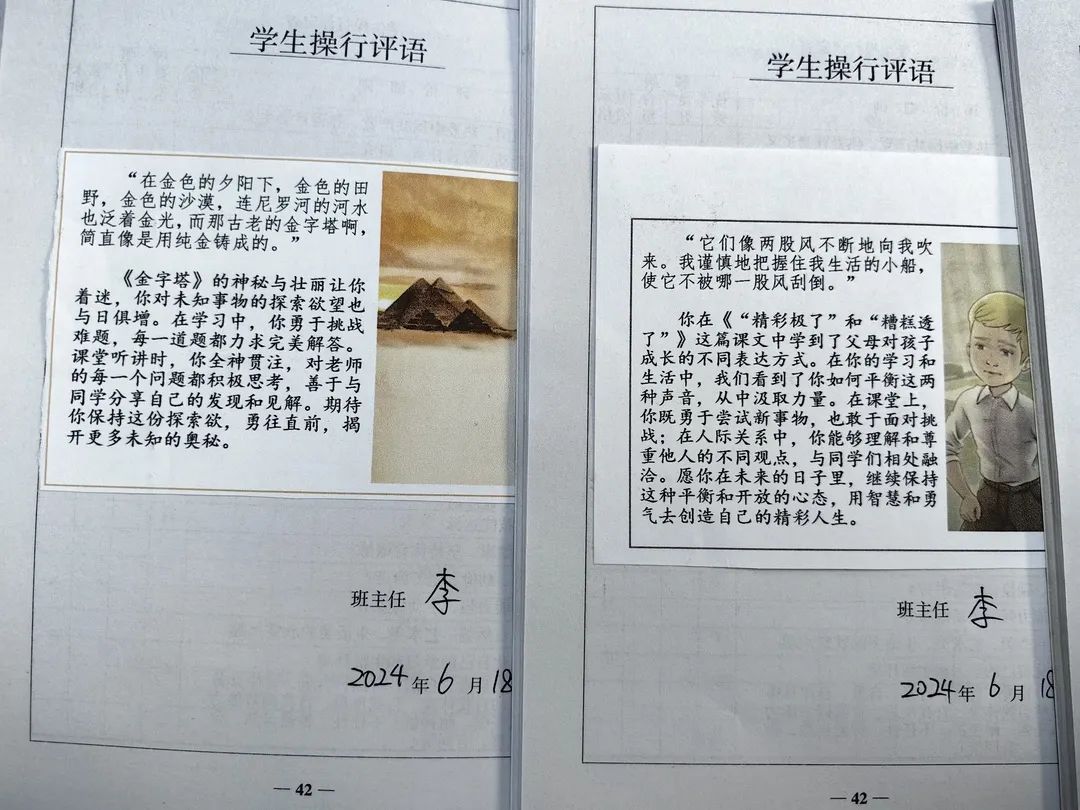 学生操行评语
“在金色的夕阳下，金色的田
野，金色的沙漠，连尼罗河的河水
也泛着金光，而那古老的金字塔啊，
简直像是用纯金铸成的。”
《金字塔》的神秘与壮丽让你
着迷，你对未知事物的探索欲望也
与日俱增。在学习中，你勇于挑战
难题，每一道题都力求完美解答。
课堂听讲时，你全神贯注，对老师
的每一个问题都积极思考，善于与
同学分享自己的发现和见解。期待
你保持这份探索欲，勇往直前，揭
开更多未知的奥秘。
班主任 李
2024年6月18
— 42 —
学生操行评语
“它们像两股风不断地向我吹
来。我谨慎地把握住我生活的小船，
使它不被哪一股风刮倒。”
你在《“精彩极了”和“糟糕透
了”》这篇课文中学到了父母对孩子
成长的不同表达方式。在你的学习和
生活中，我们看到了你如何平衡这两
种声音，从中汲取力量。在课堂上，
你既勇于尝试新事物，也敢于面对挑
战；在人际关系中，你能够理解和尊
重他人的不同观点，与同学们相处融
洽。愿你在未来的日子里，继续保持
这种平衡和开放的心态，用智慧和勇
气去创造自己的精彩人生。
班主任 李
2024年6月18
— 42 —